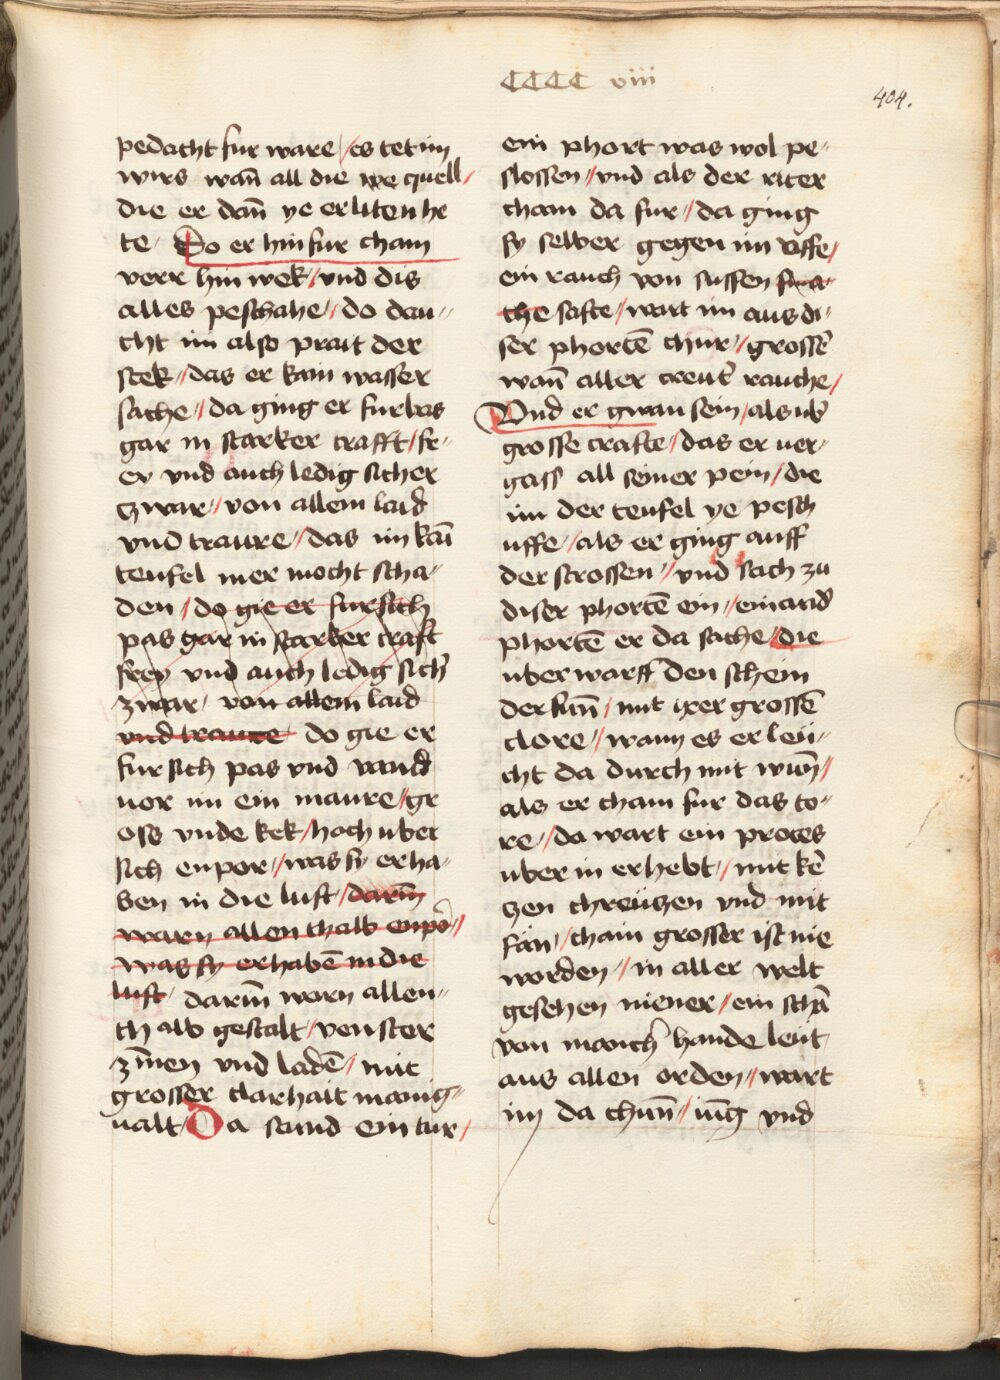 CCCC viii
404.
pedacht fur ware / es tet im
wirs wañ all die we quell /
die er dañ ye erliten he
te / Do er hin fur cham
verr hin wek / vnd dis
alles peschahe / do dau //
cht im also prait der
stek // das er kain wasser
sache // da ging er furbas
gar in starker crafft / fr //
ey vnd auch ledig sicher
zwar // von allem laid
vnd traure / das im kaī
teufel mer mocht scha //
den / do gie er fursich
pas gar in starker craft
frey vnd auch ledig sich̄
zwar / von allem laid
vnd traure do gie er
fur sich pas vnd vand
vor im ein maure / gr
oss vnde kek / hoch uber
sich enpor // was sy erha //
ben in die luft / darīn
warn allen thalb enpō //
was sy erhabē in die
luft / darīn warn allen //
thalb gestalt / venster
zīnen vnd ladē / mit
grosser clarhait manig //
ualt / Da stund ein tur /
ein phort was wol pe //
slossen // vnd als der riter
cham da fur / da ging
sy selber gegen im vffe /
ein rauch von sussen sma //
che safte / wart im aus di //
ser phortē chur // grosser̄
wañ aller creut̄ rauche /
Vnd er gwan sein / als ub̄
grosse crafte / das er uer //
gass all seiner pein / die
im der teufel ye pesch
uffe / als er ging auff
der strossen // vnd sach zu
diser phortē ein // ein and̄
phortē er da sache / die
uber warff den schein
der suñ / mit irer grossē
clore // wann es erleu //
cht da durch mit wuñ /
als er cham fur das to //
re // da wart ein proces
uber in erhebt // mit kē
tzen chreutzen vnd mit
fan // chain grosser ist nie
worden // in aller welt
gesehen niener / ein schā
von manich̄ hande leut
aus allen orden // wart
im da chunñ / iūg vnd